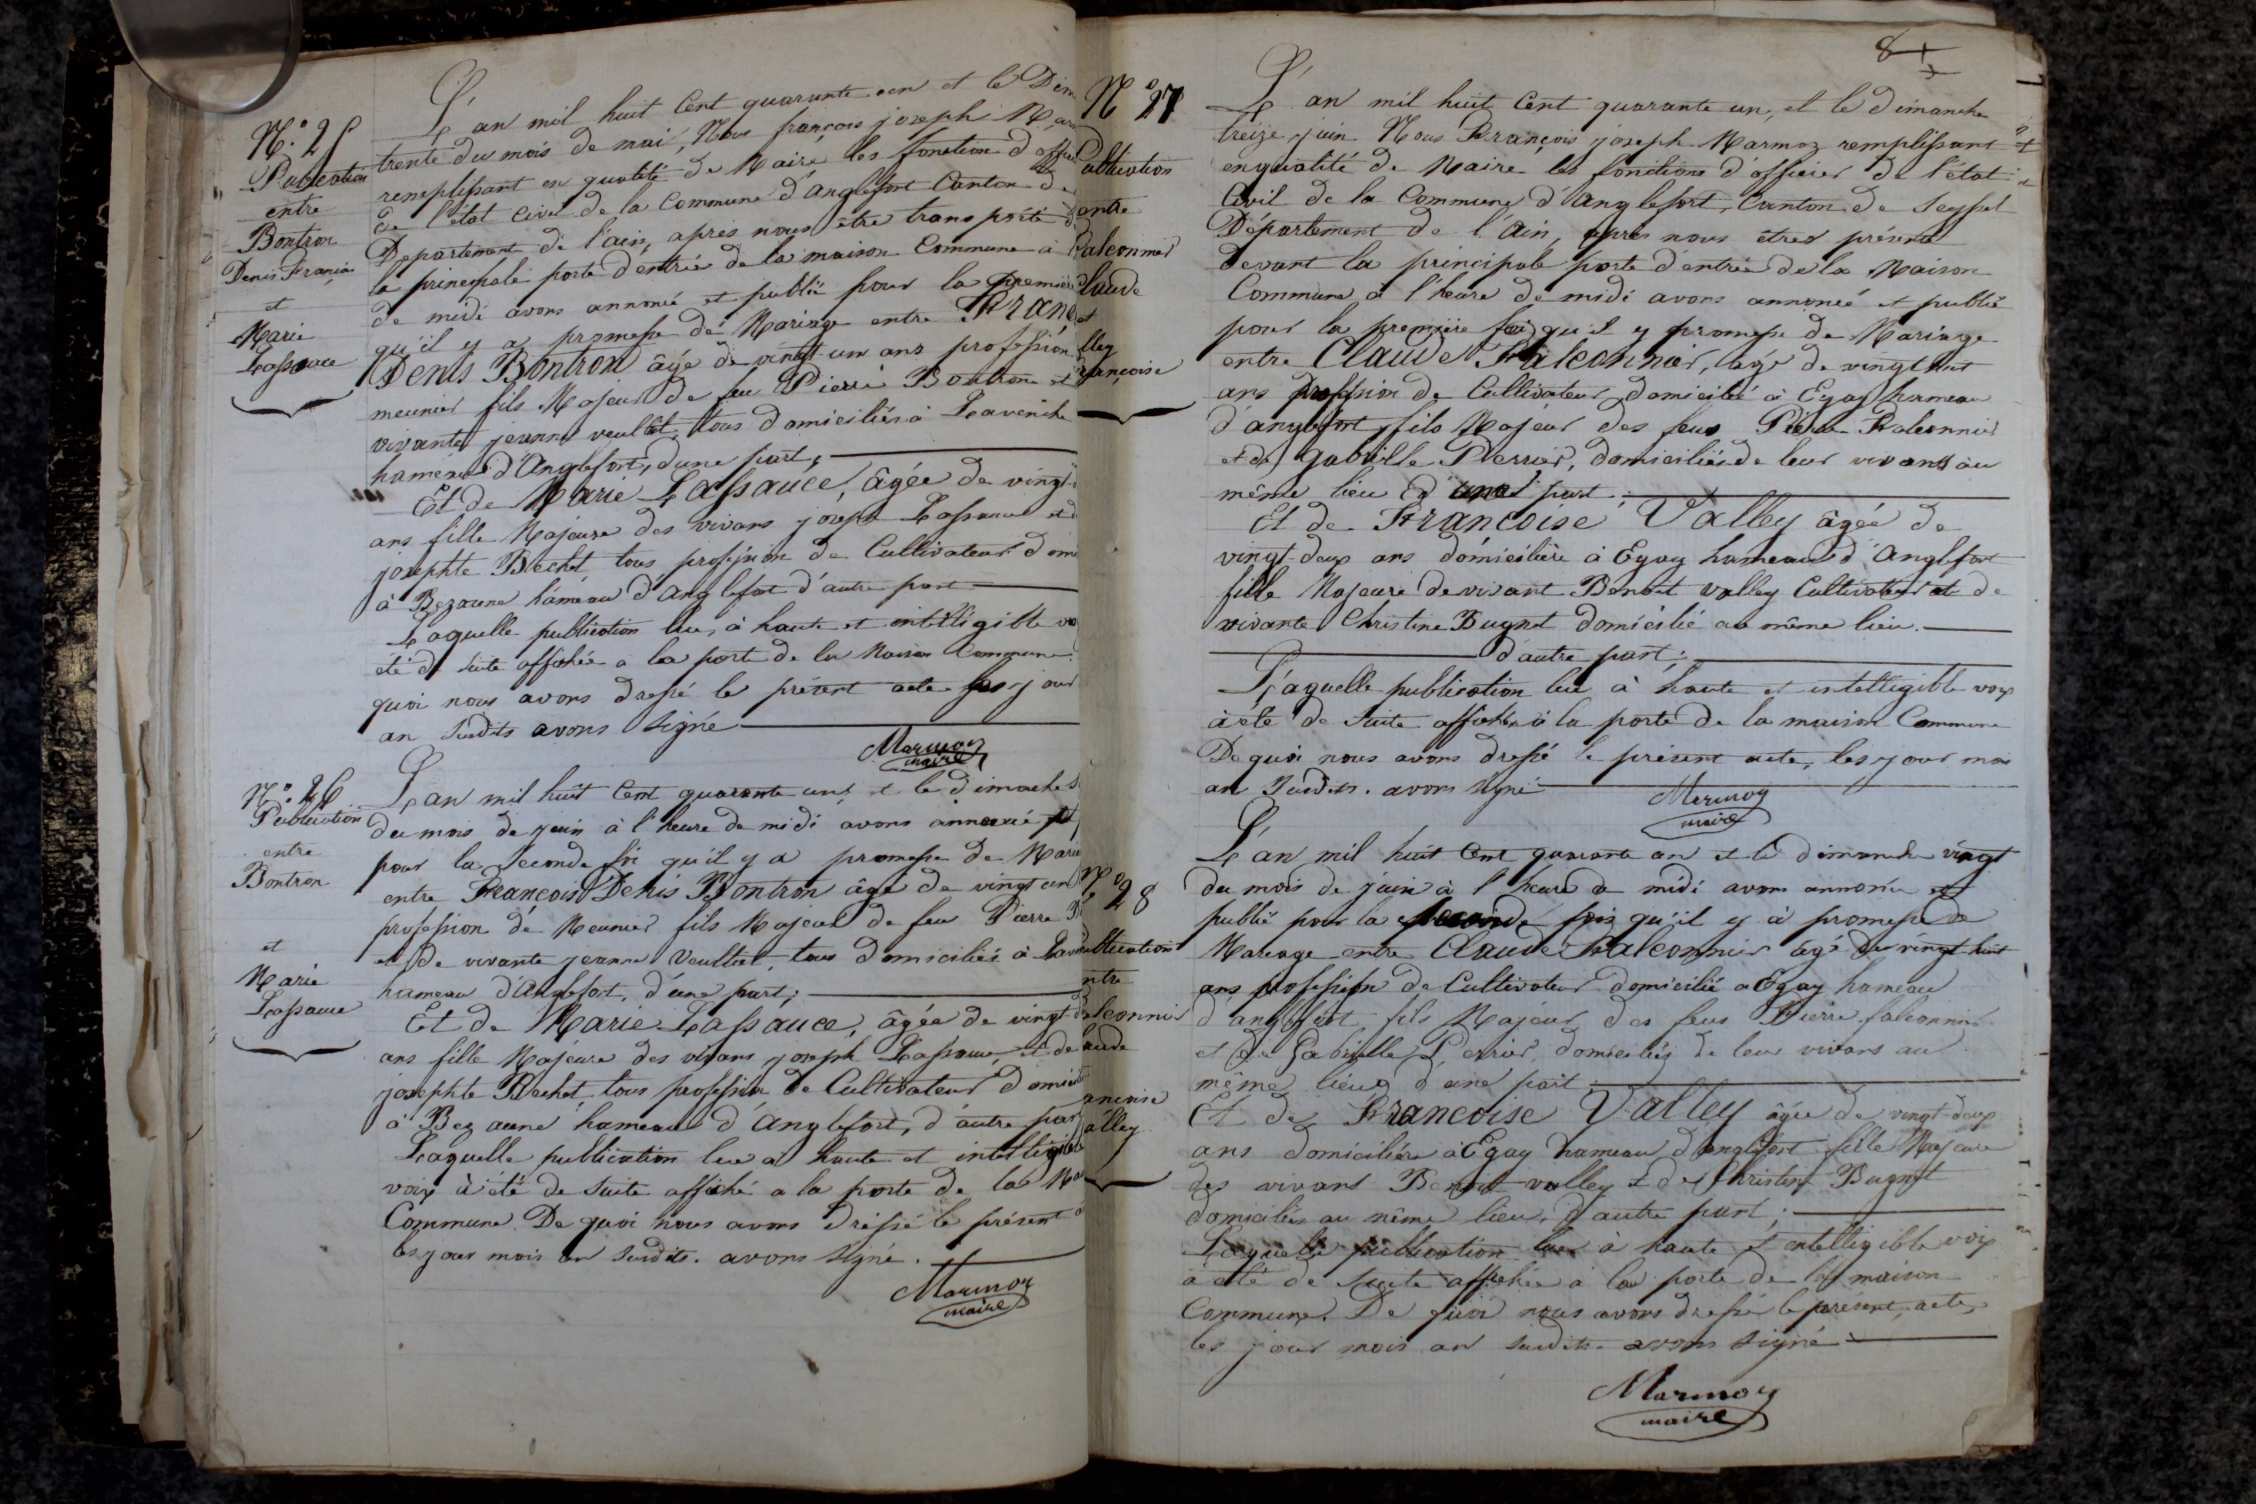 N.° 25
Publication
entre
Bontron
Denis François
et
Marie
Lassauce
L'an mil huit Cent quarante un et le Dim
trente du mois de mai, Nous françois joseph Mar
remplissant en qualité de Maire les fonction d'offici
de l'état Civil de la Commune d'anglefort Canton de
Département de l'ain, après nous être transporté d
la principale porte d'entrée de la maison Commune à
de midi avons annoncé et publié pour la première
qu'il y a promesse de Mariage entre Franç
Denis Bontron âgé de vingt un ans profession
meunier fils Majeur de feu Pierre Bontron et
vivante jeanne veultet, tous domiciliés à Lavenche
hameau d'Anglefort, d'une part;
Et de Marie Lassauce, âgée de vingt
ans fille Majeure des vivans joseph Lassauce et d
josephte Bechet tous profession de Cultivateur domi
à Bezonne hameau d'anglefort d'autre part
Laquelle publication lue, à haute et intelligible vo
été de suite affichée a la porte de la Maison Commune.
quoi nous avons dressé le présent acte les jour
an susdits avons signé
Marmoz
maire
N.° 26
Publication
entre
Bontron
et
Marie
Lassauce
L'an mil huit Cent quarante un, et le dimanche S
du mois de juin à l'heure de midi avons annoncé et
pour la Seconde foi qu'il y a promesse de Maria
entre François Denis Bontron âgé de vingt un
profession de Meunier fils Majeur de feu Pierre B
et de vivante jeanne Veultet, tous domiciliés à Lav
hameau d'Anglefort, d'une part;
Et de Marie Lassauce, âgée de vingt
ans fille Majeure des vivans joseph Lassauce, et de
josephte Bechet, tous profession de Cultivateur domici
à Bezonne hameau d'Anglefort, d'autre par
Laquelle publication lue à haute et intelligible
voix à été de suite affiché a la porte de la Mai
Commune. De quoi nous avons dréssé le présent a
les jour mois an susdits. avons signé.
Marmoz
maire
8
N° 27
Publication
entre
Falconnier
Claude
et
lley
rançoise
L'an mil huit Cent quarante un, et le dimanche
treize juin Nous François joseph Marmoz remplissant
en qualité de Maire les fonctions d'officier de l'état
Civil de la Commune d'Anglefort, Canton de Seyssel
Département de l'Ain, après nous êtres présenté
devant la principale porte d'entrée de la Maison
Commune à l'heure de midi avons annoncé et publié
pour la première fois qu'il y promesse de Mariage
entre Claude Falconnier, âgé de vingt huit
ans profession de Cultivateur domicilié à Egay hameau
d'anglefort, fils Majeur des feus Pierre Falconnier
et de Gabrielle Perrier, domiciliés de leur vivans au
même lieu d'une part.
Et de Françoise Valley âgée de
vingt deux ans domicilière à Egay hameau d'Anglefort
fille Majeure de vivant Benoit valley Cultivateur et de
vivante Christine Bugnot domicilié au même lieu.
d'autre part;
L'aquelle publication lue à haute et intelligible voix
à été de Suite affichée à la porte de la maison Commune
De quoi nous avons dressé le présent acte, les jour mois
an Susdits. avons signé
Marmoz
maire
N° 28
ublication
ntre
alconnier
laude
ançoise
alley
L'an mil huit Cent quarante un et le dimanche vingt
du mois de juin à l'heure de midi avons annoncé et
publié pour la Seconde fois qu'il y à promesse de
Mariage entre Claude Falconnier âgé de vingt huit
ans profession de Cultivateur domicilié a Egay hameau
d'anglefort fils Majeur des feus Pierre falconnier
et de Gabrielle Perrier, domiciliés de leur vivans au
même lieu, d'une part
Et de Françoise Valley âgée de vingt deux
ans domicilière à Egay hameau d'anglefort fille Majeure
des vivant Benoit valley et de Christine Bugnot
domiciliés au même lieu, d'autre part;
Laquelle publication lue à haute et intelligible voix
à été de Suite affichée à la porte de la maison
Commune. De quoi nous avons dressé le présent, acte,
les jour mois an susdits avons signé
Marmoz
maire